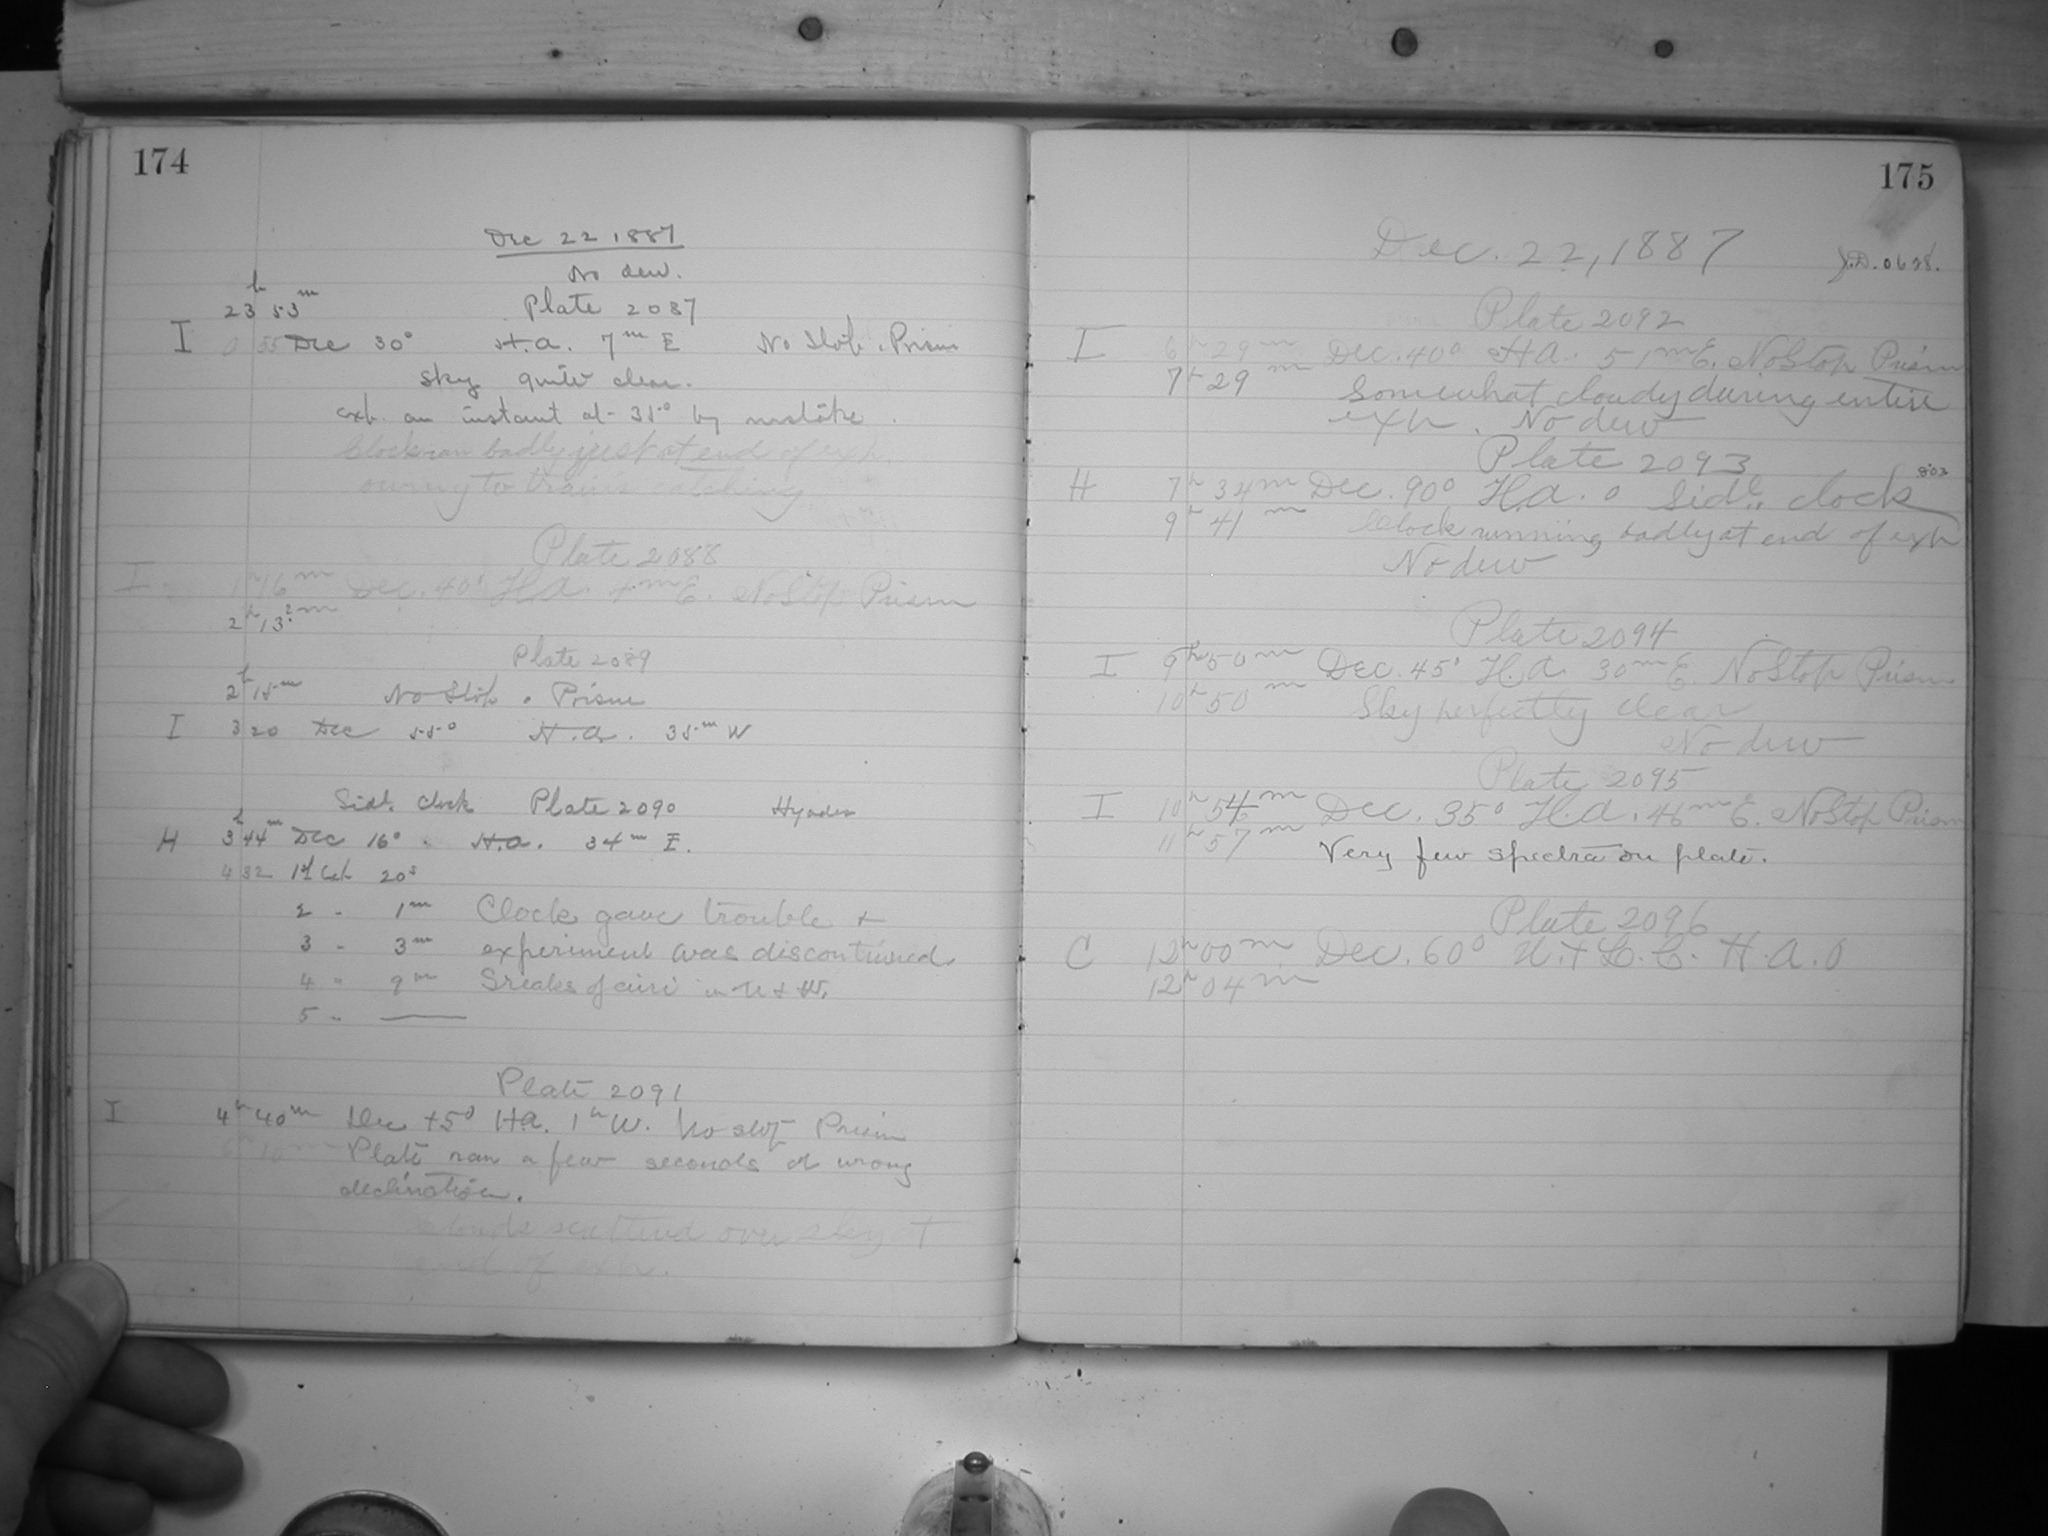 174
Dec 22 1887
No dew.
23h 53m Plate 2087
I 0 55 Dec 30° H.A. 7m E No Stop. Prism
Sky quite clear.
exp. an instant at 35° by mistake.
Clock ran badly just at end of exp.
owing to train catching
Plate 2088
I 1h 16m Dec. 40° H.A. 4m E. No Stop Prism
2h 13?m
Plate 2089
2h 15m No Stop. Prism
I 3 20 Dec 55° H.A. 35m W
Sidl. Clock Plate 2090 Hyades
H 3h 44m Dec 16° H.A. 34m E.
4 32 1st Exp. 20s
2 " 1m Clock gave trouble +
3 " 3m experiment was discontinued.
4 " 9m Sreaks of cirri in N + W.
5 " —
Plate 2091
I 4h 40m Dec +5° H.A. 1h W. No stop Prism
6h 10m Plate ran a few seconds at wrong
declination.
Clouds scattered over sky at
end of exp.
175
Dec. 22, 1887
J.D. 0628.
Plate 2092
I 6h 29m Dec. 40° H.A. 51m E. No Stop Prism
7h 29m Somewhat cloudy during entire
exp. No dew
Plate 2093
H 7h 34m Dec. 90° H.A. 0 Sidl. clock 803
9h 41m Clock running badly at end of exp
No dew
Plate 2094
I 9h 50m Dec. 45° H.A. 30m E. No Stop Prism
10h 50m Sky perfectly clear
No dew
Plate 2095
I 10h 54m Dec. 35° H.A. 46m E. No Stop Prism
11h 57m Very few spectra on plate.
Plate 2096
C 12h 00m Dec. 60° U. + L. C. H.A. 0
12h 04m